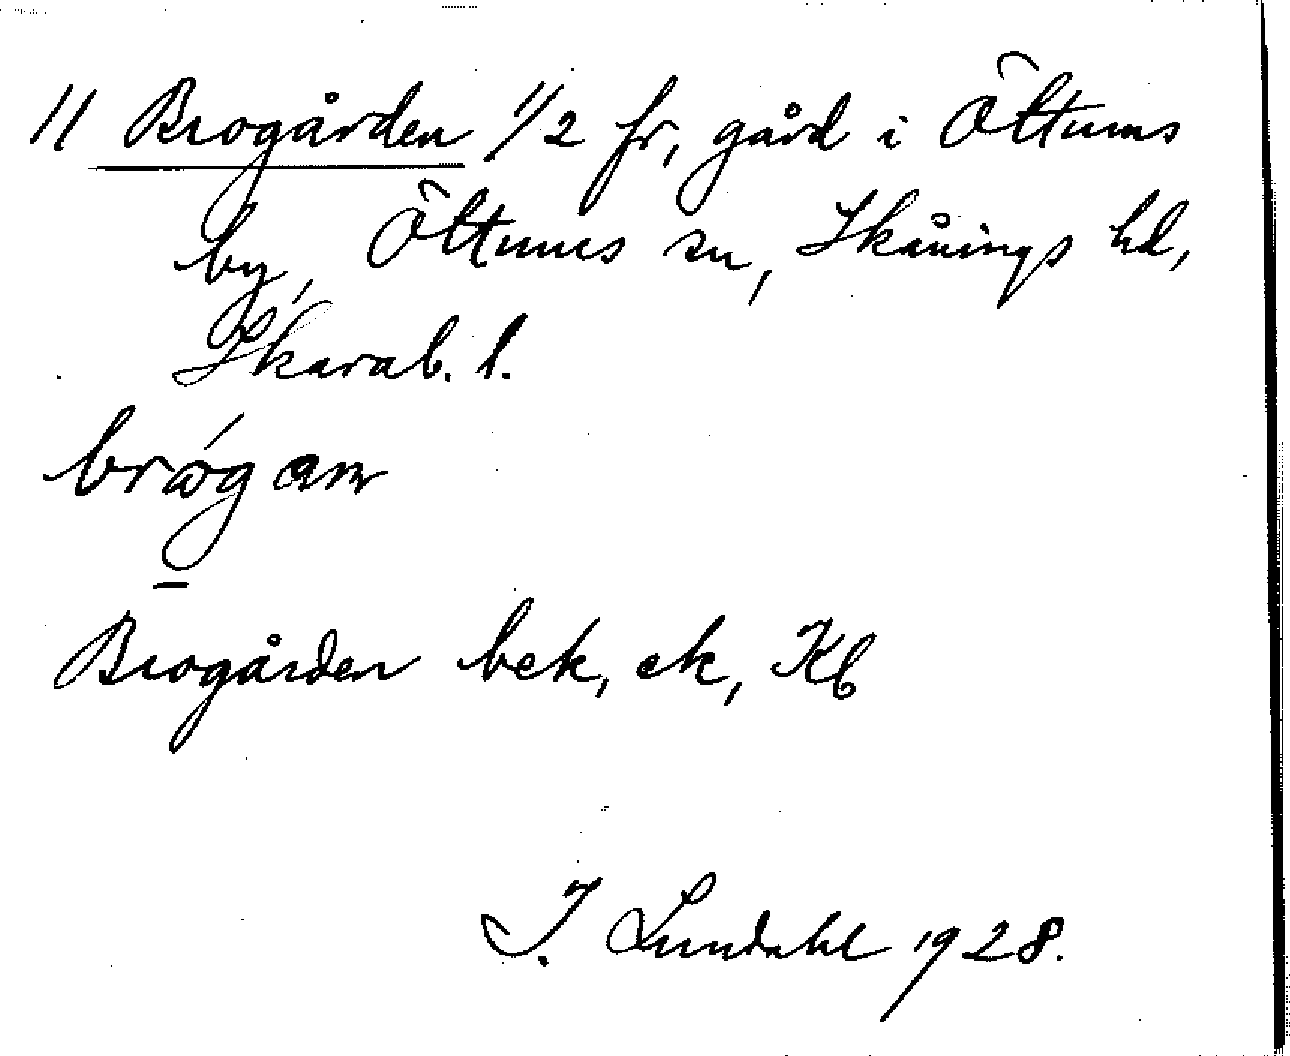 11 Brogården 1/2 fr, gård i Öttums
by, Öttums sn, Skånings hd,
Skarab. l.
Brogården bek, ek, Kb
I. Lundahl 1928.